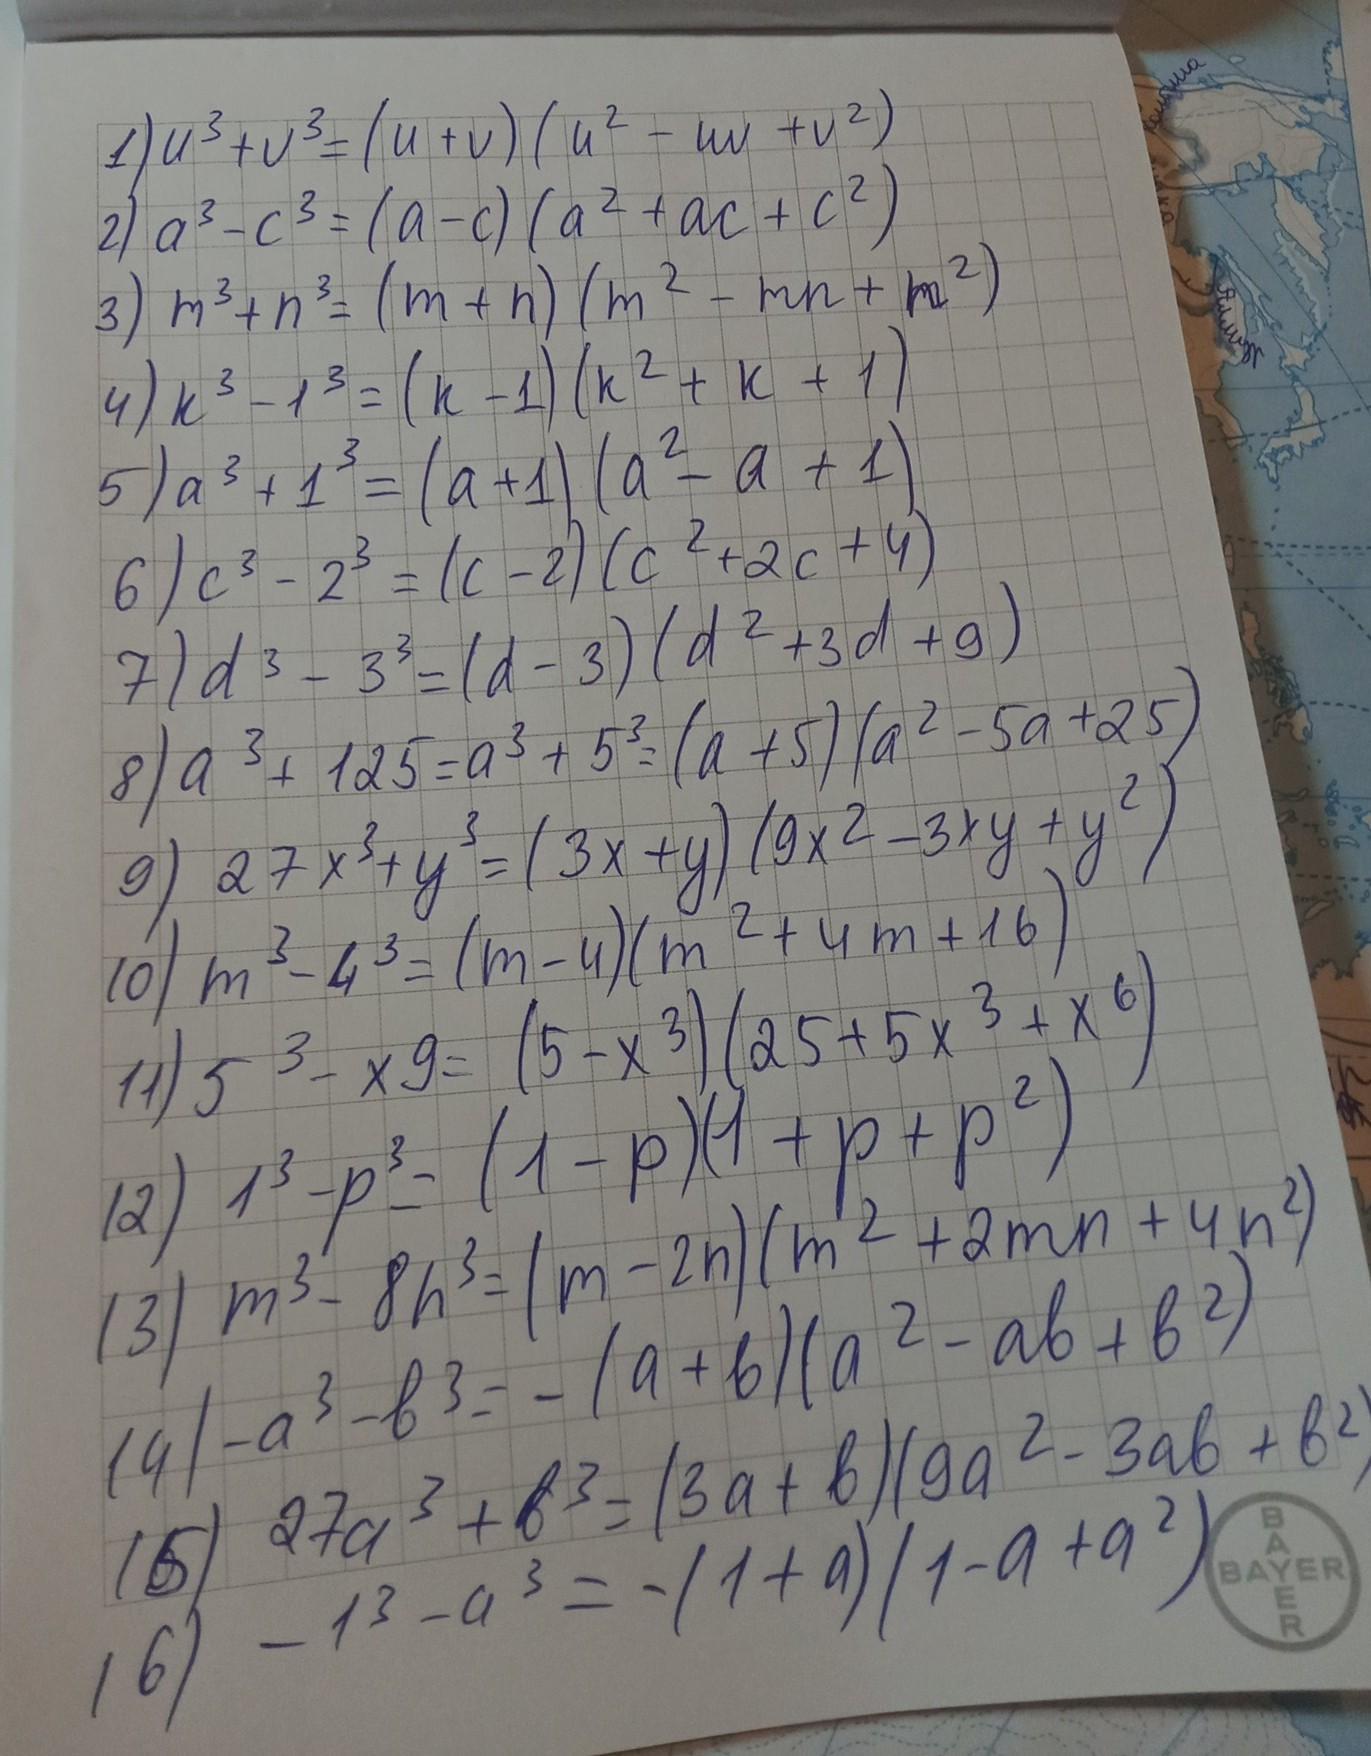 1) u³+v³=(u+v)(u²-uv+v²)
2) a³-c³=(a-c)(a²+ac+c²)
3) m³+n³=(m+n)(m²-mn+m²)
4) k³-1³=(k-1)(k²+k+1)
5) a³+1³=(a+1)(a²-a+1)
6) c³-2³=(c-2)(c²+2c+4)
7) d³-3³=(d-3)(d²+3d+9)
8) a³+125=a³+5³=(a+5)(a²-5a+25)
9) 27x³+y³=(3x+y)(9x²-3xy+y²)
10) m³-4³=(m-4)(m²+4m+16)
11) 5³-x9=(5-x³)(25+5x³+x⁶)
12) 1³-p³=(1-p)(1+p+p²)
13) m³-8n³=(m-2n)(m²+2mn+4n²)
14) -a³-b³=-(a+b)(a²-ab+b²)
15) 27a³+b³=(3a+b)(9a²-3ab+b²)
16) -1³-a³=-(1+a)(1-a+a²)
BAYER
BAYER